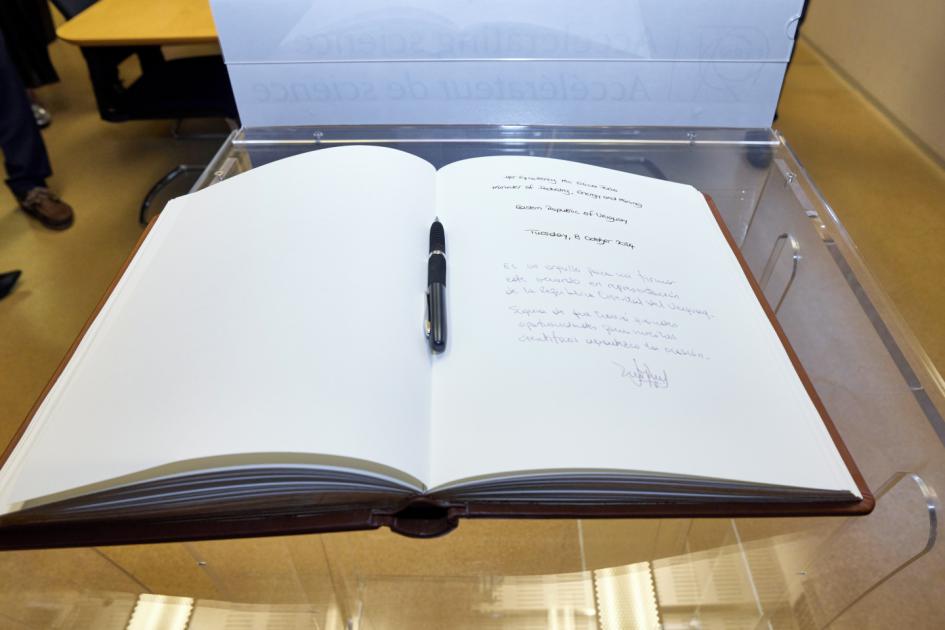 Accelerating science
Accélérateur de science
Her Excellency Ms Elisa Facio
Minister of Industry, Energy and Mining
Eastern Republic of Uruguay
Tuesday, 8 October 2024
Es un orgullo para mi firmar
este acuerdo en representación
de la República Oriental del Uruguay.
Segura de que traerá grandes
oportunidades para nuestros
científicos agradezco la ocasión.